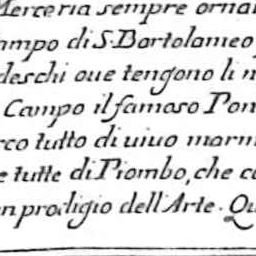 Merceria sempre orna
ampo di S. Bortolameo
deschi oue tengono li m
Campo il famoso Pon
rco tutto di uiuo marm
e tutte di Piombo, che c
n prodigio dell'Arte. Qu